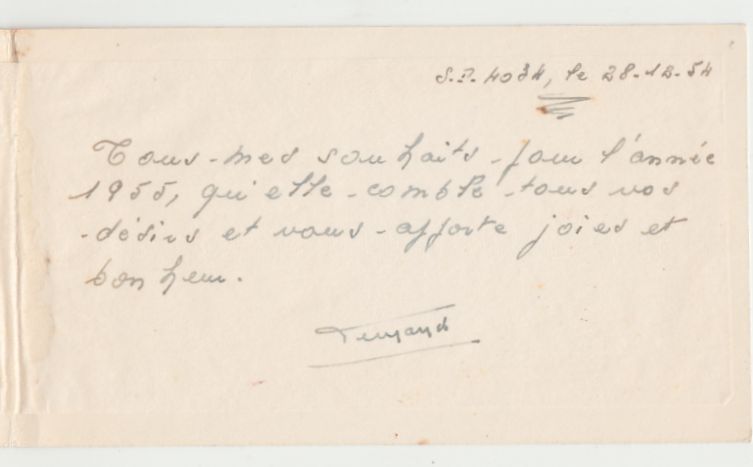 S.P. 4034, le 28-12-54
Tous mes souhaits pour l'année
1955, qu'elle comble tous vos
désirs et vous apporte joies et
bonheur.